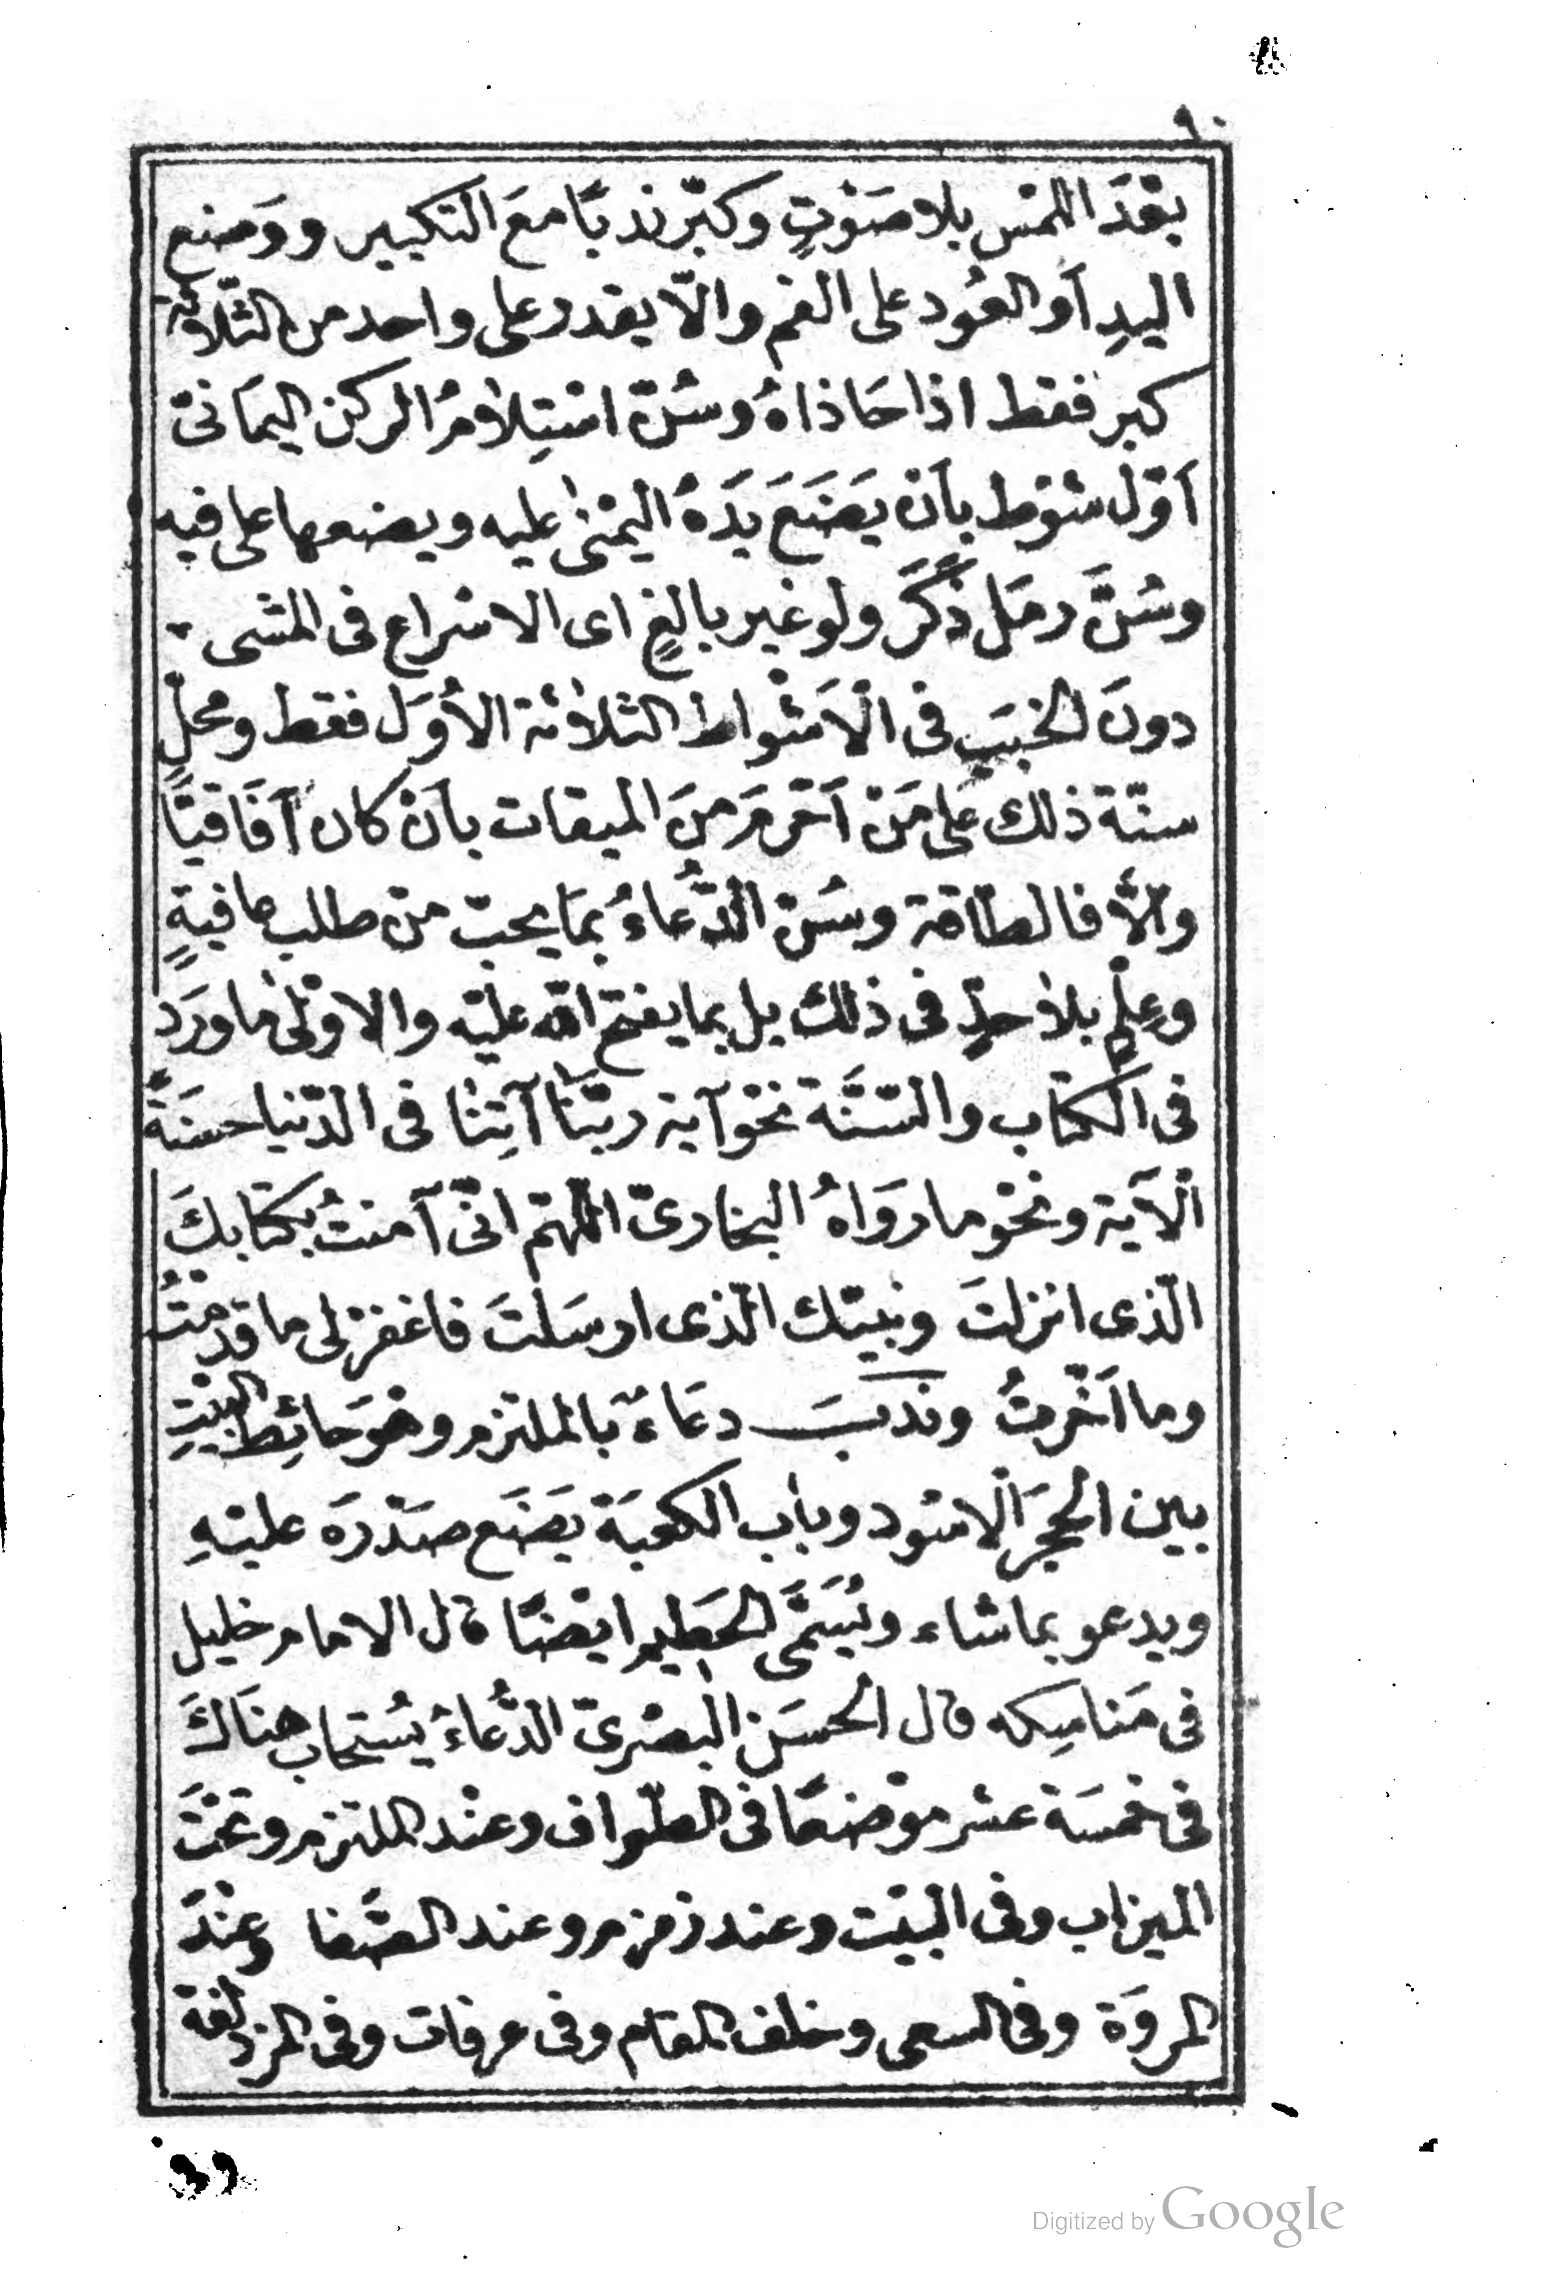 ٩٠
بَعْدَ اللمْس بلا صَوْتٍ وكبّر ندبًا معَ التكبير ووَضع
اليدِ أو العُود على الفم والّا يقدر على واحد من الثّلاثة
كبر فقط اذا حَاذاهُ وسُنّ اسْتِلامُ الركن اليمَانىّ
أوّل شوْط بأنْ يَضَعَ يَدَهُ اليمْنىٰ عليه ويضعها على فيه
وسُنَّ رمَل ذَكَرَ ولو غير بالغٍ اى الاسْراع فى المشى
دونَ الخبَبِ فى الْأشْواط الثلاثة الأُوَل فقط ومحلّ
سنّة ذلك عَلى مَنْ أحْرَمَ منَ الميقات بأنْ كان آفَاقيًّا
والّا فالطاقة وسُنّ الدُّعاءُ بمَا يحبّ منْ طلب عافيةٍ
وعِلْمٍ بلا حدٍّ فى ذلك بل بما يفتح الله عليْه والاوْلىٰ ما ورَدَ
فى الكتاب والسّنَّة نحْو آية ربّنَا آتِنا فى الدّنيا حسَنَةً
الْآية ونحْو ما روَاهُ البخارىّ اللّهمّ انّى آمنتُ بكتابكَ
الّذى انزلتَ ونبيّك الّذى ارسَلتَ فاغفرْ لى ما قدمْتُ
وما أخّرتُ وندبَ دعَاءٌ بالملتزم وهْوَ حائِط البيْتِ
بين الحجَر الْاسْود وباب الكعبَة يَضَع صَدْرَه عليْهِ
ويدعو بما شاء ويُسَمَّى الحَطيم ايْضًا قال الامام خليل
فى مَناسِكه قال الحسَن البصْرىّ الدُّعاءُ يُستجاب هنَاكَ
فى خمْسَة عشر موْضعًا فى الطّواف وعنْد الملتزم وتحْتَ
الميزاب وفى البيْت وعند زمزم وعند الصّفا وعنْدَ
المروَة وفى السعى وخلف المقام وفى عرفات وفى المزدلفة
Digitized by Google